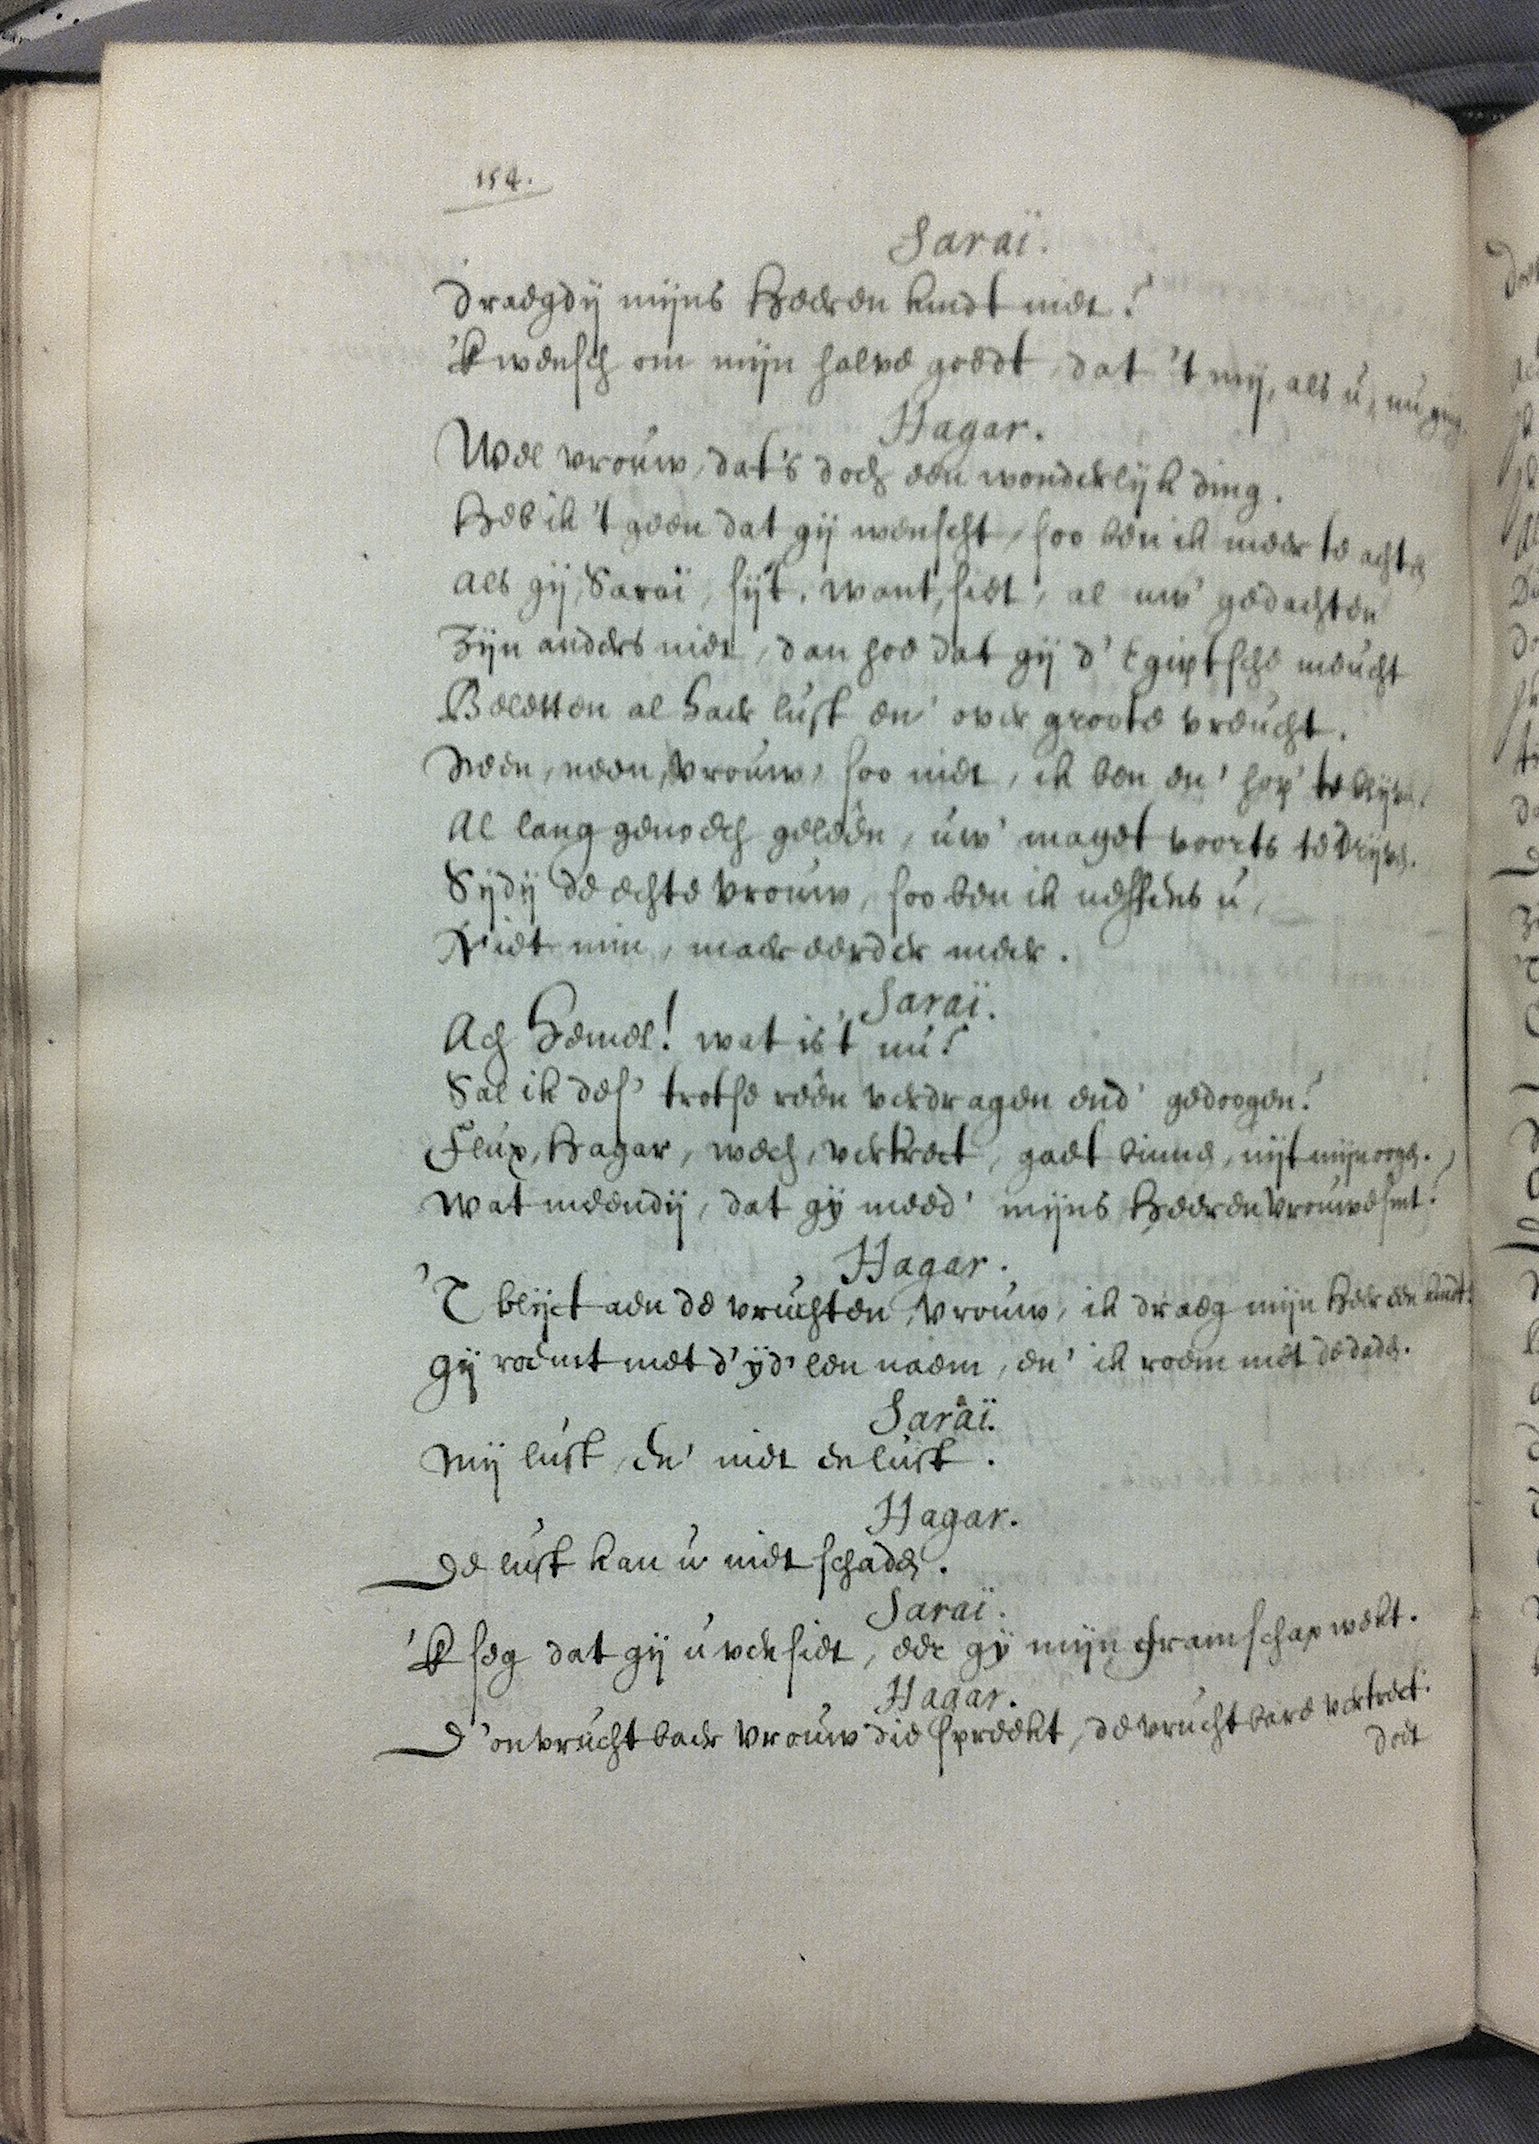 154.
Saraï.
Draegdij mijns Heeren kindt niet?
'k wensch om mijn halve goedt, dat 't mij, als ú, nú ging.
Hagar.
Wel vroúw, dat's doch een wonderlijk ding.
Heb ik 't geen dat gij wenscht, soo ben ik meer te achten
Als gij, Saraï, sijt. want, siet, al uw' gedachten
Zijn anders niet, dan hoe dat gij d' Egiptsche meúcht
Beletten al haer lúst en' over groote vreúcht.
Neen, neen, vroúw, soo niet, ik ben en' hop' te blijven.
Al lang genoech geleên, úw' maget voorts te drijven.
Sijdij de echte vroúw, soo ben ik neffens ú,
Niet min, maer eerder meer.
Saraï.
Ach Hemel! wat is't nú?
Sal ik des' trotse reên verdragen end' gedoogen?
Flúx, Hagar, wech, vertrect, gaet binnen, uijt mijn oogen.
Wat meendij, dat gij meed' mijns Heeren vroúwe sint?
Hagar.
'T blijct aen de vrúchten, vroúw, ik draeg mijn Heer een kindt.
Gij roemt met d'ijd'len naem, en' ik roem met de daden.
Saraï.
Mij lúst, en' niet en lúst.
Hagar.
De lúst kan ú niet schaden.
Saraï.
'k seg dat gij ú versiet, eer gij mijn gramschap wekt.
Hagar.
D'onvrúchtbaer vroúw die spreekt, de vrúchtbare vertrect.
doet